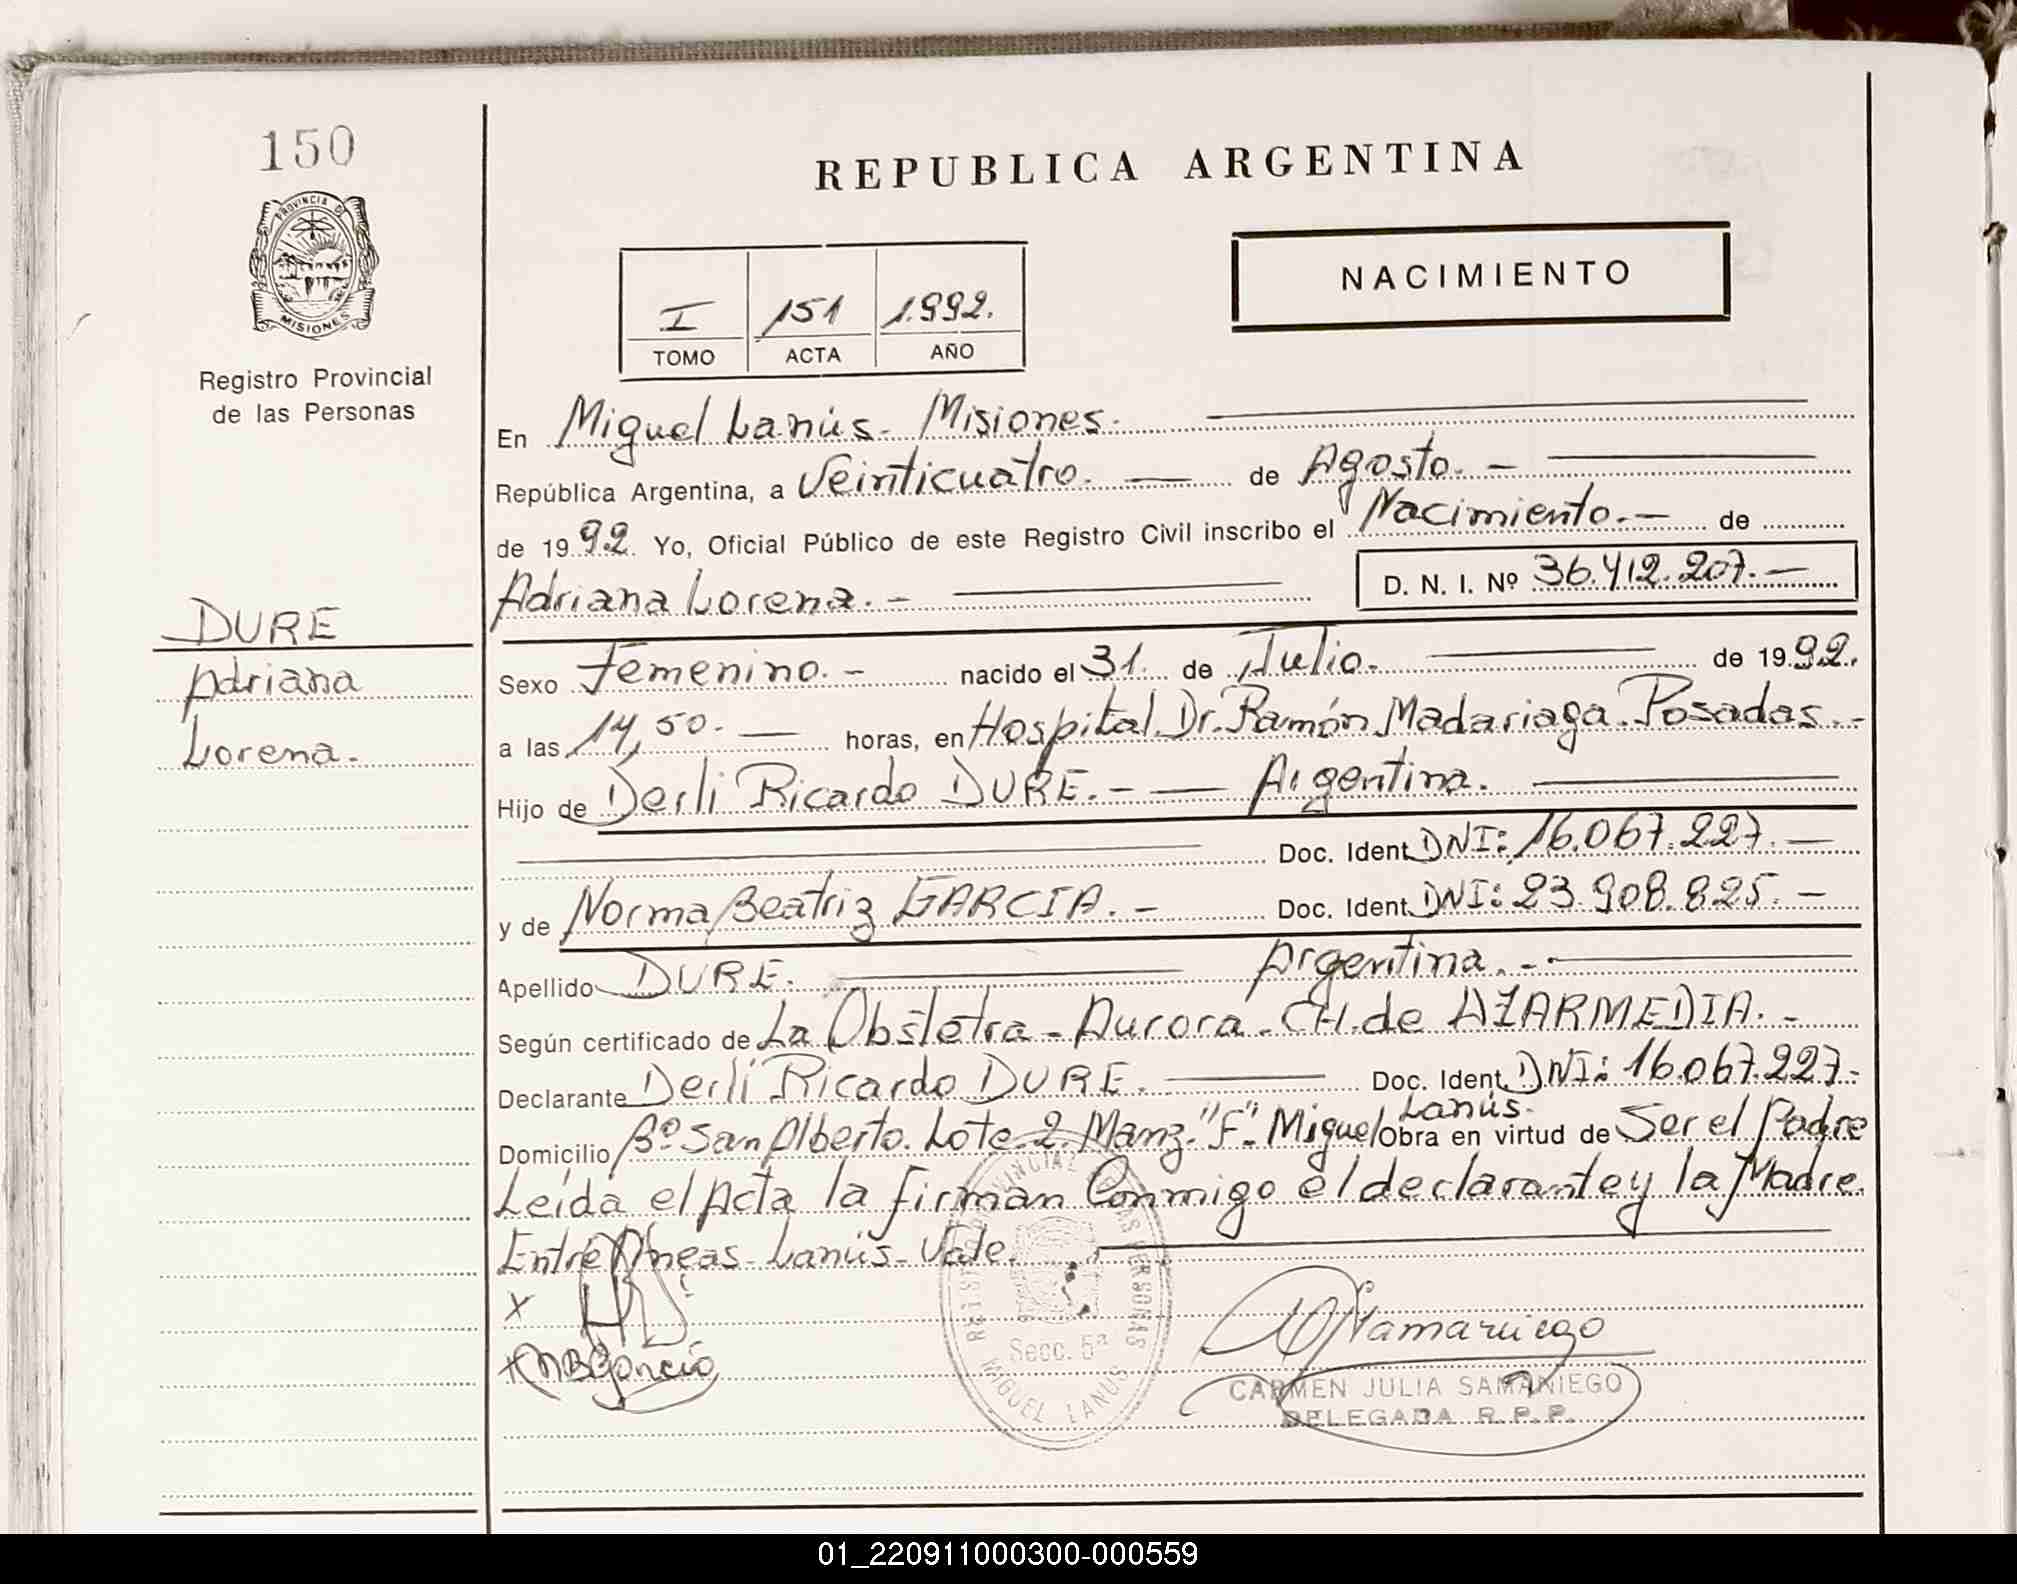 150
PROVINCIA DE
MISIONES
Registro Provincial
de las Personas
DURE
Adriana
Lorena.
REPUBLICA ARGENTINA
NACIMIENTO
I 151 1.992.
TOMO ACTA AÑO
En Miguel Lanús - Misiones.
República Argentina, a Veinticuatro. — de Agosto. -
de 1992. Yo, Oficial Público de este Registro Civil inscribo el Nacimiento. - de
Adriana Lorena. - D. N. I. Nº 36.412.207. —
Sexo Femenino. - nacido el 31. de Julio. de 1992.
a las 14,50. — horas, en Hospital Dr. Ramón Madariaga. Posadas. -
Hijo de Derli Ricardo DURE. - — Argentina.
Doc. Ident. DNI: 16.067.227. —
y de Norma Beatriz GARCIA. - Doc. Ident. DNI: 23.908.825. -
Apellido DURE. Argentina. -
Según certificado de La Obstetra - Aurora - CH. de AZARMEDIA. -
Declarante Derli Ricardo DURE. Doc. Ident. DNI: 16.067.227-
Lanús.
Domicilio Bº San Alberto. Lote 2. Manz. "F". Miguel Obra en virtud de Ser el Padre
Leída el Acta la firman Conmigo el declarante y la Madre.
Entre líneas - Lanús - Vale.
X
x NBGarcia
REGISTRO PROVINCIAL DE LAS PERSONAS
Secc. 5ª
MIGUEL LANUS
CJSamaniego
CARMEN JULIA SAMANIEGO
DELEGADA R. P. P.
01_220911000300-000559